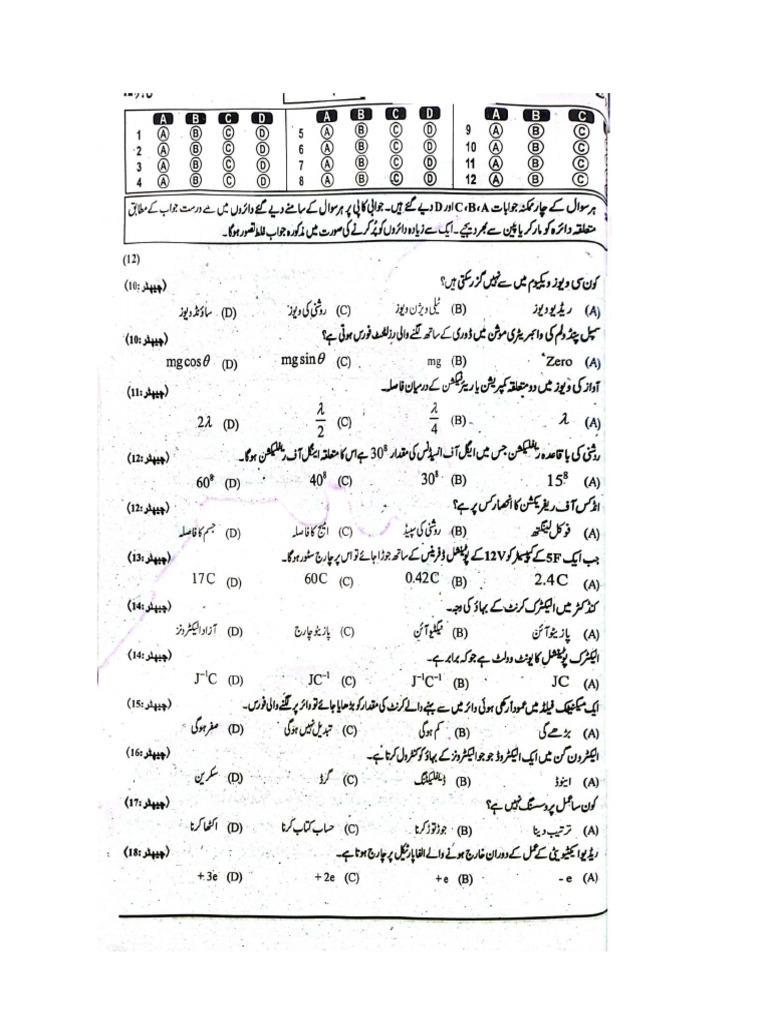 A B C D A B C D A B C
1 A B C D 5 A B C D 9 A B C
2 A B C D 6 A B C D 10 A B C
3 A B C D 7 A B C D 11 A B C
4 A B C D 8 A B C D 12 A B C
ہر سوال کے چار ممکنہ جوابات C،B،A اور D دیے گئے ہیں۔ جوابی کاپی پر ہر سوال کے سامنے دیے گئے دائروں میں سے درست جواب کے مطابق
متعلقہ دائرہ کو مارکر یا پین سے بھر دیجیے۔ ایک سے زیادہ دائروں کو پُر کرنے کی صورت میں مذکورہ جواب غلط تصور ہوگا۔
(12)
کون سی ویوز ویکیوم میں سے نہیں گزر سکتی ہیں؟ (چیپٹر:10)
(A) ریڈیو ویوز (B) ٹیلی ویژن ویوز (C) روشنی کی ویوز (D) ساؤنڈ ویوز
سمپل پنڈولم کی وائبریٹری موشن میں ڈوری کے ساتھ لگنے والی رزلٹنٹ فورس ہوتی ہے؟ (چیپٹر:10)
(A) Zero (B) mg (C) mg sin θ (D) mg cos θ
آواز کی ویوز میں دو متعلقہ کمپریشن یا ریئرفیکشن کے درمیان فاصلہ۔ (چیپٹر:11)
(A) λ (B) λ/4 (C) λ/2 (D) 2λ
روشنی کی باقاعدہ ریفلیکشن جس میں اینگل آف انسیڈنس کی مقدار 30⁸ ہے اس کا متعلقہ اینگل آف ریفلیکشن ہوگا۔ (چیپٹر:12)
(A) 15⁸ (B) 30⁸ (C) 40⁸ (D) 60⁸
انڈکس آف ریفریکشن کا انحصار کس پر ہے؟ (چیپٹر:12)
(A) فوکل لینگتھ (B) روشنی کی سپیڈ (C) امیج کا فاصلہ (D) جسم کا فاصلہ
جب ایک 5F کے کپیسٹر کو 12V کے پوٹینشل ڈفرینس کے ساتھ جوڑا جائے تو اس پر چارج سٹور ہوگا۔ (چیپٹر:13)
(A) 2.4C (B) 0.42C (C) 60C (D) 17C
کنڈکٹر میں الیکٹرک کرنٹ کے بہاؤ کی وجہ۔ (چیپٹر:14)
(A) پازیٹو آئن (B) نیگٹیو آئن (C) پازیٹو چارج (D) آزاد الیکٹرونز
الیکٹرک پوٹینشل کا یونٹ وولٹ ہے جو کہ برابر ہے۔ (چیپٹر:14)
(A) JC (B) J⁻¹C⁻¹ (C) JC⁻¹ (D) J⁻¹C
ایک میگنیٹک فیلڈ میں عموداً رکھی ہوئی وائر میں سے بہنے والے کرنٹ کی مقدار کو بڑھایا جائے تو وائر پر لگنے والی فورس۔ (چیپٹر:15)
(A) بڑھے گی (B) کم ہوگی (C) تبدیل نہیں ہوگی (D) صفر ہوگی
الیکٹرون گن میں ایک الیکٹروڈ جو جو الیکٹرونز کے بہاؤ کو کنٹرول کرتا ہے۔ (چیپٹر:16)
(A) اینوڈ (B) ڈیفلیکٹنگ (C) گرڈ (D) سکرین
کون سا عمل پروسسنگ نہیں ہے؟ (چیپٹر:17)
(A) ترتیب دینا (B) جوڑ توڑ کرنا (C) حساب کتاب کرنا (D) اکٹھا کرنا
ریڈیو ایکٹیویٹی کے عمل کے دوران خارج ہونے والے الفا پارٹیکل پر چارج ہوتا ہے۔ (چیپٹر:18)
(A) -e (B) +e (C) +2e (D) +3e